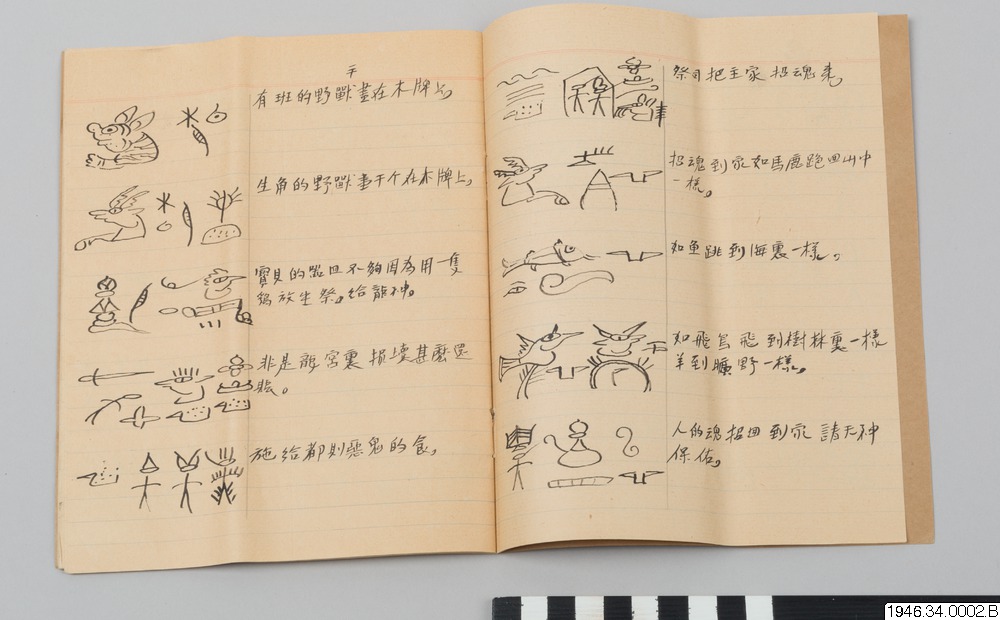 有班的野獸畫在木牌上。
生角的野獸畫于个在木牌上。
寶貝的器皿不夠因為用一隻
鷄放生祭。給龍神。
非是龍宮裏損壞甚麼還
賬。
施給都則惡鬼的食。
祭司把主家招魂来。
招魂到家如馬鹿跑回山中
一樣。
如鱼跳到海裏一樣。
如飛鸟飛到樹林裏一樣
羊到曠野一樣。
人的魂招回到家請天神
保佑。
1946.34.0002.B